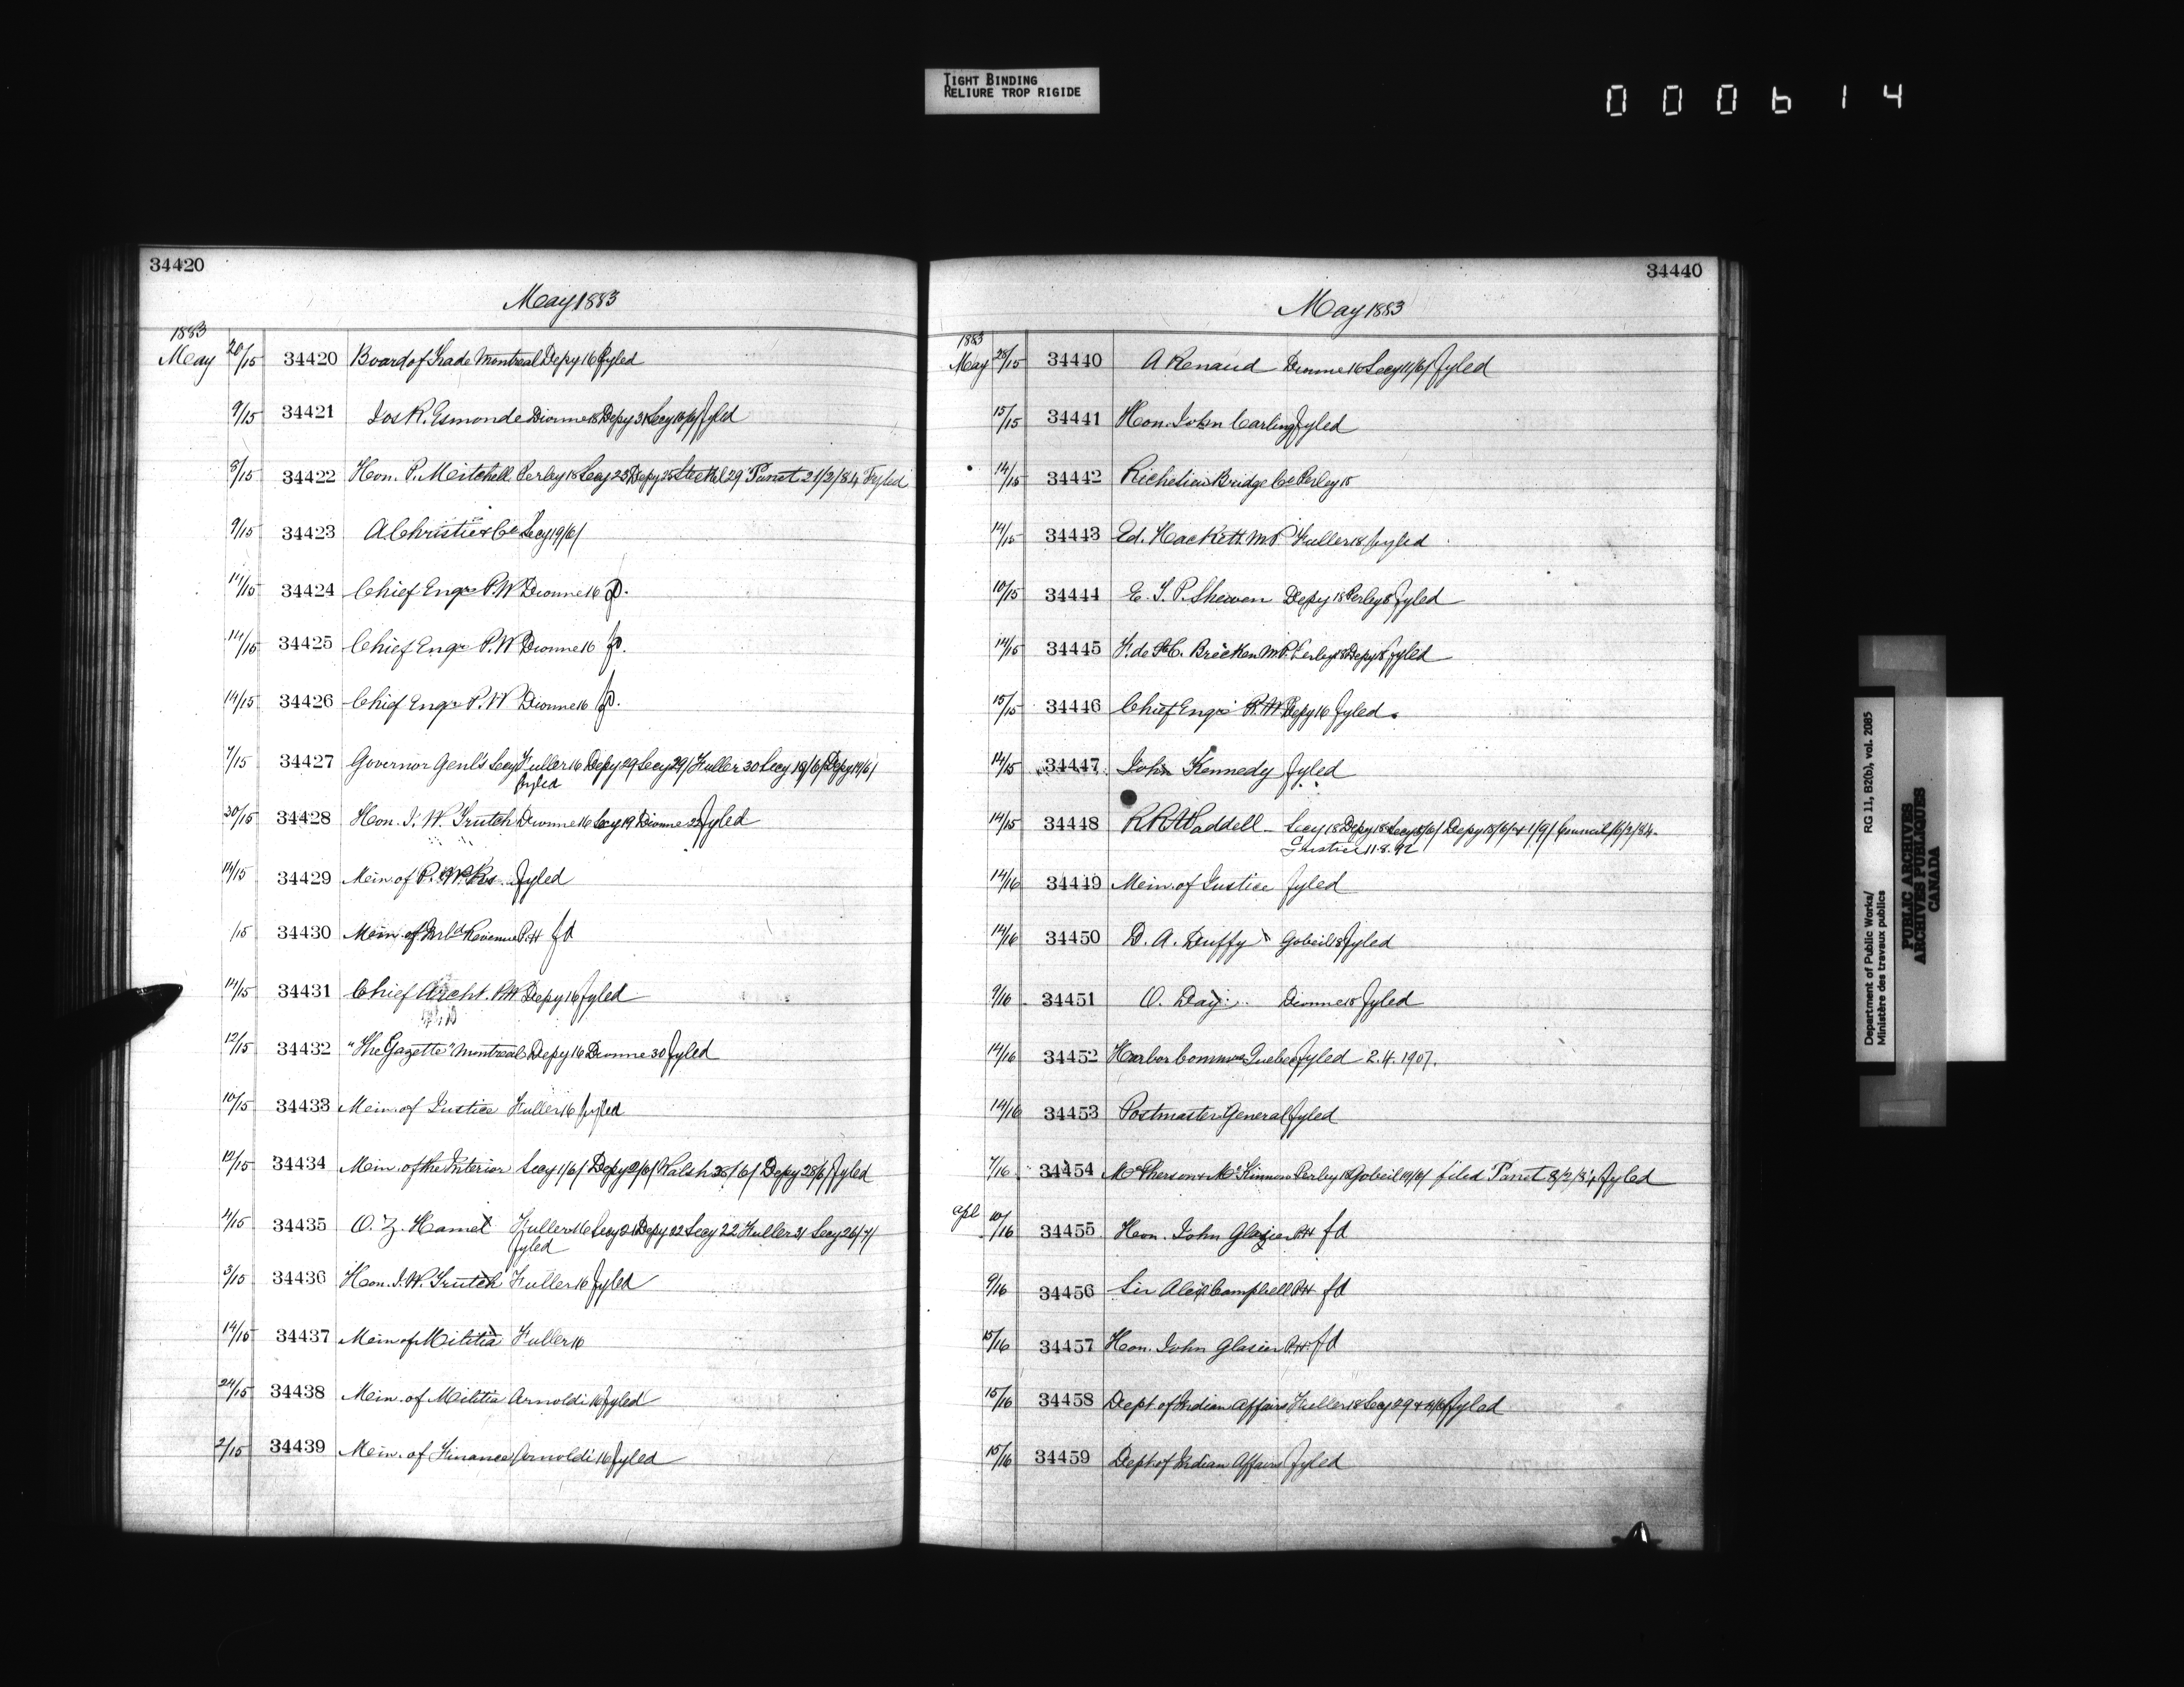 TIGHT BINDING
RELIURE TROP RIGIDE
000614
34420
May 1883
1883
May 26/15 34420 Board of Trade Montreal Depy 16 Fyled
9/15 34421 Jos R. Esmonde Dionne 18 Depy 31 Secy Fyled
8/15 34422 Hon. P. Mitchell Perley 18 Secy 23 Depy 25 Steckel 29 Panet 21/2/84 Fyled
9/15 34423 A Christie & Co Secy 19/6/
11/15 34424 Chief Engr P.W Dionne 16 fd.
14/15 34425 Chief Engr P.W Dionne 16 fd.
14/15 34426 Chief Engr P.W Dionne 16 fd.
7/15 34427 Governor Genl's Secy Fuller 16 Depy 29 Secy 29/ Fuller 30 Secy 18/6/ Depy 19/6/
fyled
30/15 34428 Hon. J. W. Trutch Dionne 16 Secy 19 Dionne 22 Fyled
14/15 34429 Min. of P. Wks Fyled
/15 34430 Min. of Inld Revenue P.H fd
14/15 34431 Chief Archt. P.W Depy 16 Fyled
12/15 34432 "The Gazette" Montreal Depy 16 Dionne 30 Fyled
10/15 34433 Min. of Justice Fuller 16 fyled
12/15 34434 Min. of the Interior Secy 1/6/ Depy 2/6/ Walsh 28/6/ Depy 28/6/ Fyled
4/15 34435 O. Z. Hamel Fuller 16 Secy 21 Depy 22 Secy 22 Fuller 31 Secy 26/7/
fyled
3/15 34436 Hon. J. W. Trutch Fuller 16 fyled
14/15 34437 Min of Militia Fuller 16
24/15 34438 Min. of Militia Arnoldi 16 fyled
2/15 34439 Min. of Finance Arnoldi 16 fyled
34440
May 1883
1883
May 28/15 34440 A Renaud Dionne 16 Secy 11/6/ fyled
15/15 34441 Hon. John Carling fyled
14/15 34442 Richelieu Bridge Co Perley 18
14/15 34443 Ed. Hackett. M.P. Fuller 18 fyled
10/15 34444 E. T. P. Shewen Depy 18 Perley 8 fyled
14/15 34445 F. de St C. Brecken M.P. Perley 18 Depy 18 fyled
15/15 34446 Chief Engr P.W Depy 16 fyled.
14/15 34447 John Kennedy fyled
14/15 34448 R R Waddell Secy 18 Depy 18 Secy Depy 18/6/ & 1/9/ Council 16/2/84.
Justice 11.8.92
14/16 34449 Min. of Justice fyled
14/16 34450 D. A. Duffy Gobeil 18 fyled
9/16 34451 O. Day Dionne 18 fyled
14/16 34452 Harbor Commrs Quebec fyled 2.4.1907.
14/16 34453 Postmaster General fyled
7/16 34454 McPherson & McKinnon Perley 18 Gobeil 19/6/ filed Panet 8/2/84 fyled
Apl 10/16 34455 Hon. John Glazier P.H fd
9/16 34456 Sir Alex Campbell P.H fd
15/16 34457 Hon. John Glasier P.H. fd
15/16 34458 Dept of Indian Affairs Fuller 18 Secy 29 & fyled
15/16 34459 Dept of Indian Affairs fyled
Department of Public Works/
Ministère des travaux publics
RG 11, B2(b), vol. 2085
PUBLIC ARCHIVES
ARCHIVES PUBLIQUES
CANADA